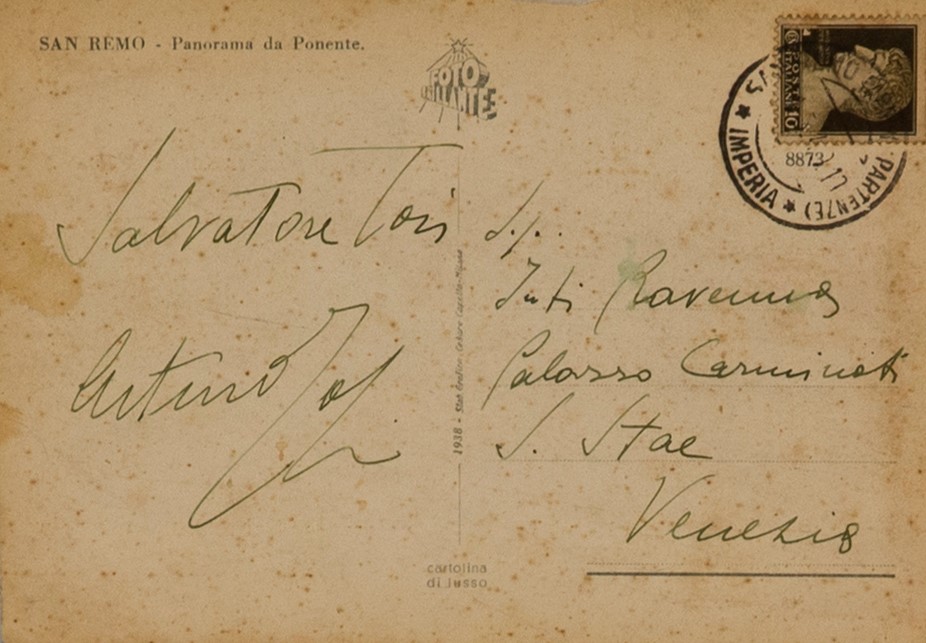 SAN REMO - Panorama da Ponente.
FOTO
Salvatore Tosi
Arturo Tosi
1938 - Stab. Grafico Cesare Capello - Milano
cartolina
di lusso
S.p.
Juti Ravenna
Palazzo Carminati
S. Stae
Venezia
IMPERIA
PARTENZE)
8873
10